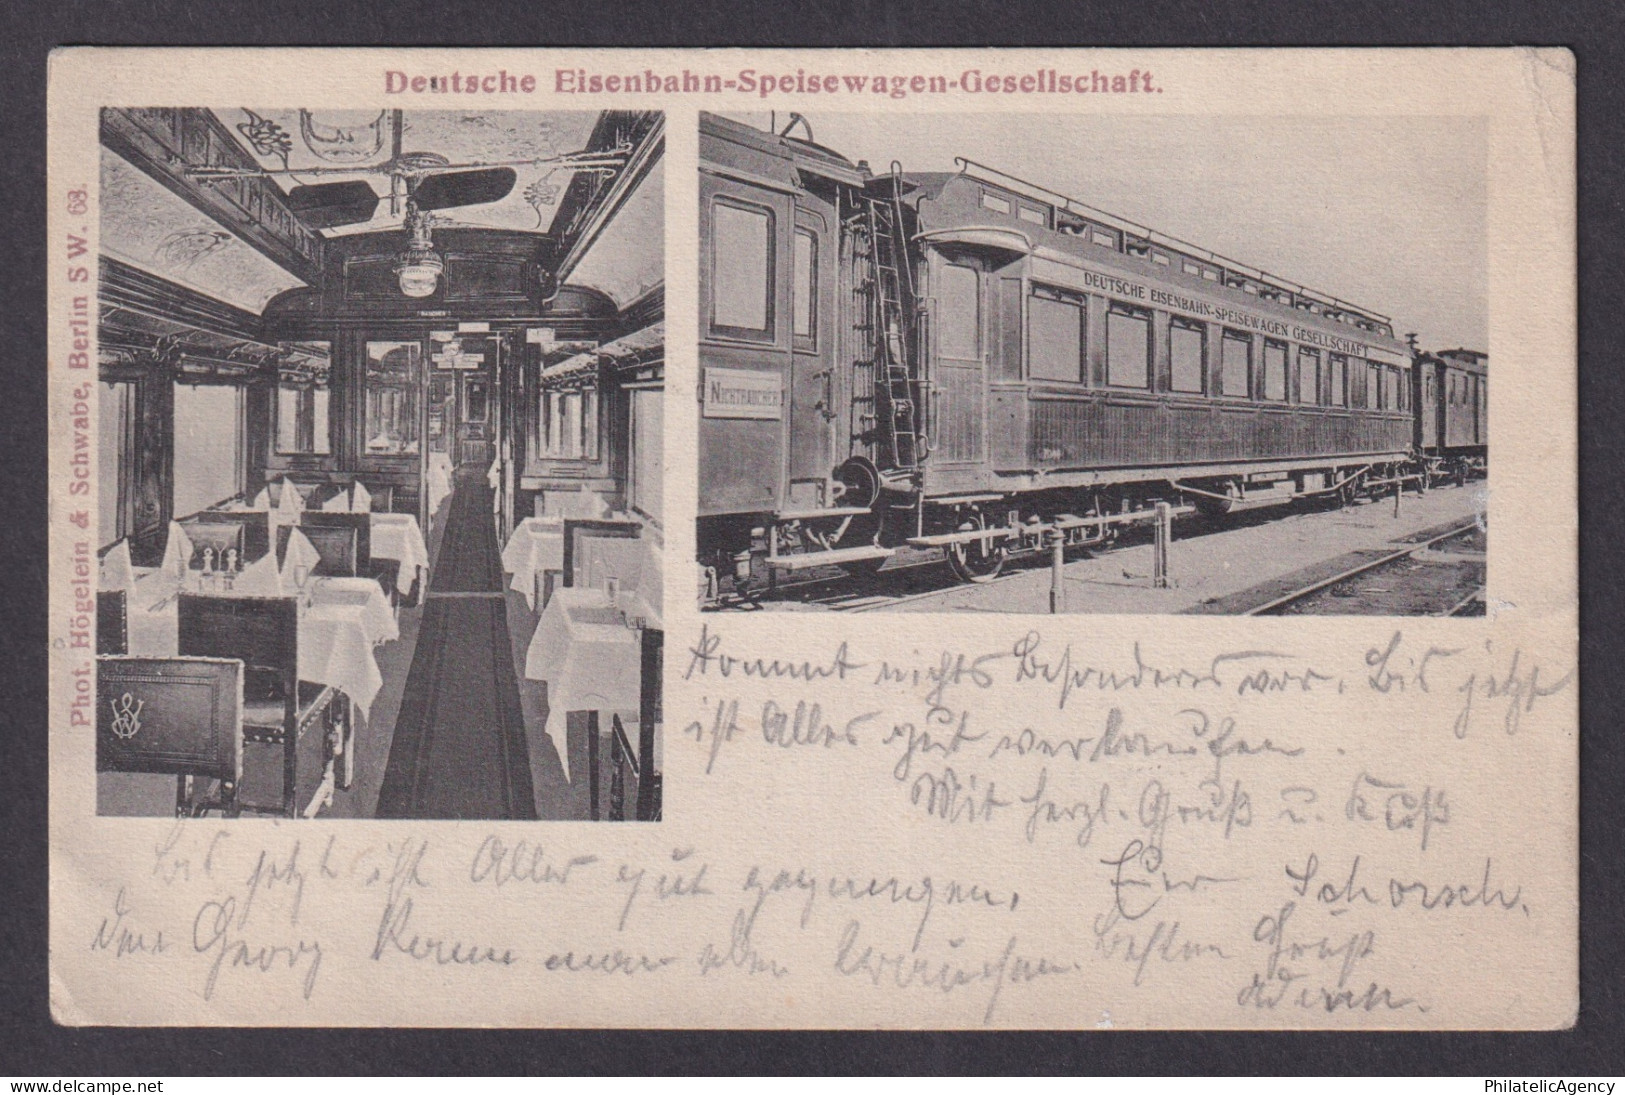 Deutsche Eisenbahn-Speisewagen-Gesellschaft.
Phot. Högelein & Schwabe, Berlin SW. 68.
NICHTRAUCHER
DEUTSCHE EISENBAHN-SPEISEWAGEN GESELLSCHAFT
kommt nichts Besonderes vor. Bis jetzt
ist Alles gut verlaufen.
Mit herzl. Gruß u. Kuß
Euer Schorsch.
bis jetzt ist Alles gut gegangen,
den Georg kann man eben brauchen.
besten Gruß
delcampe.net
PhilatelicAgency